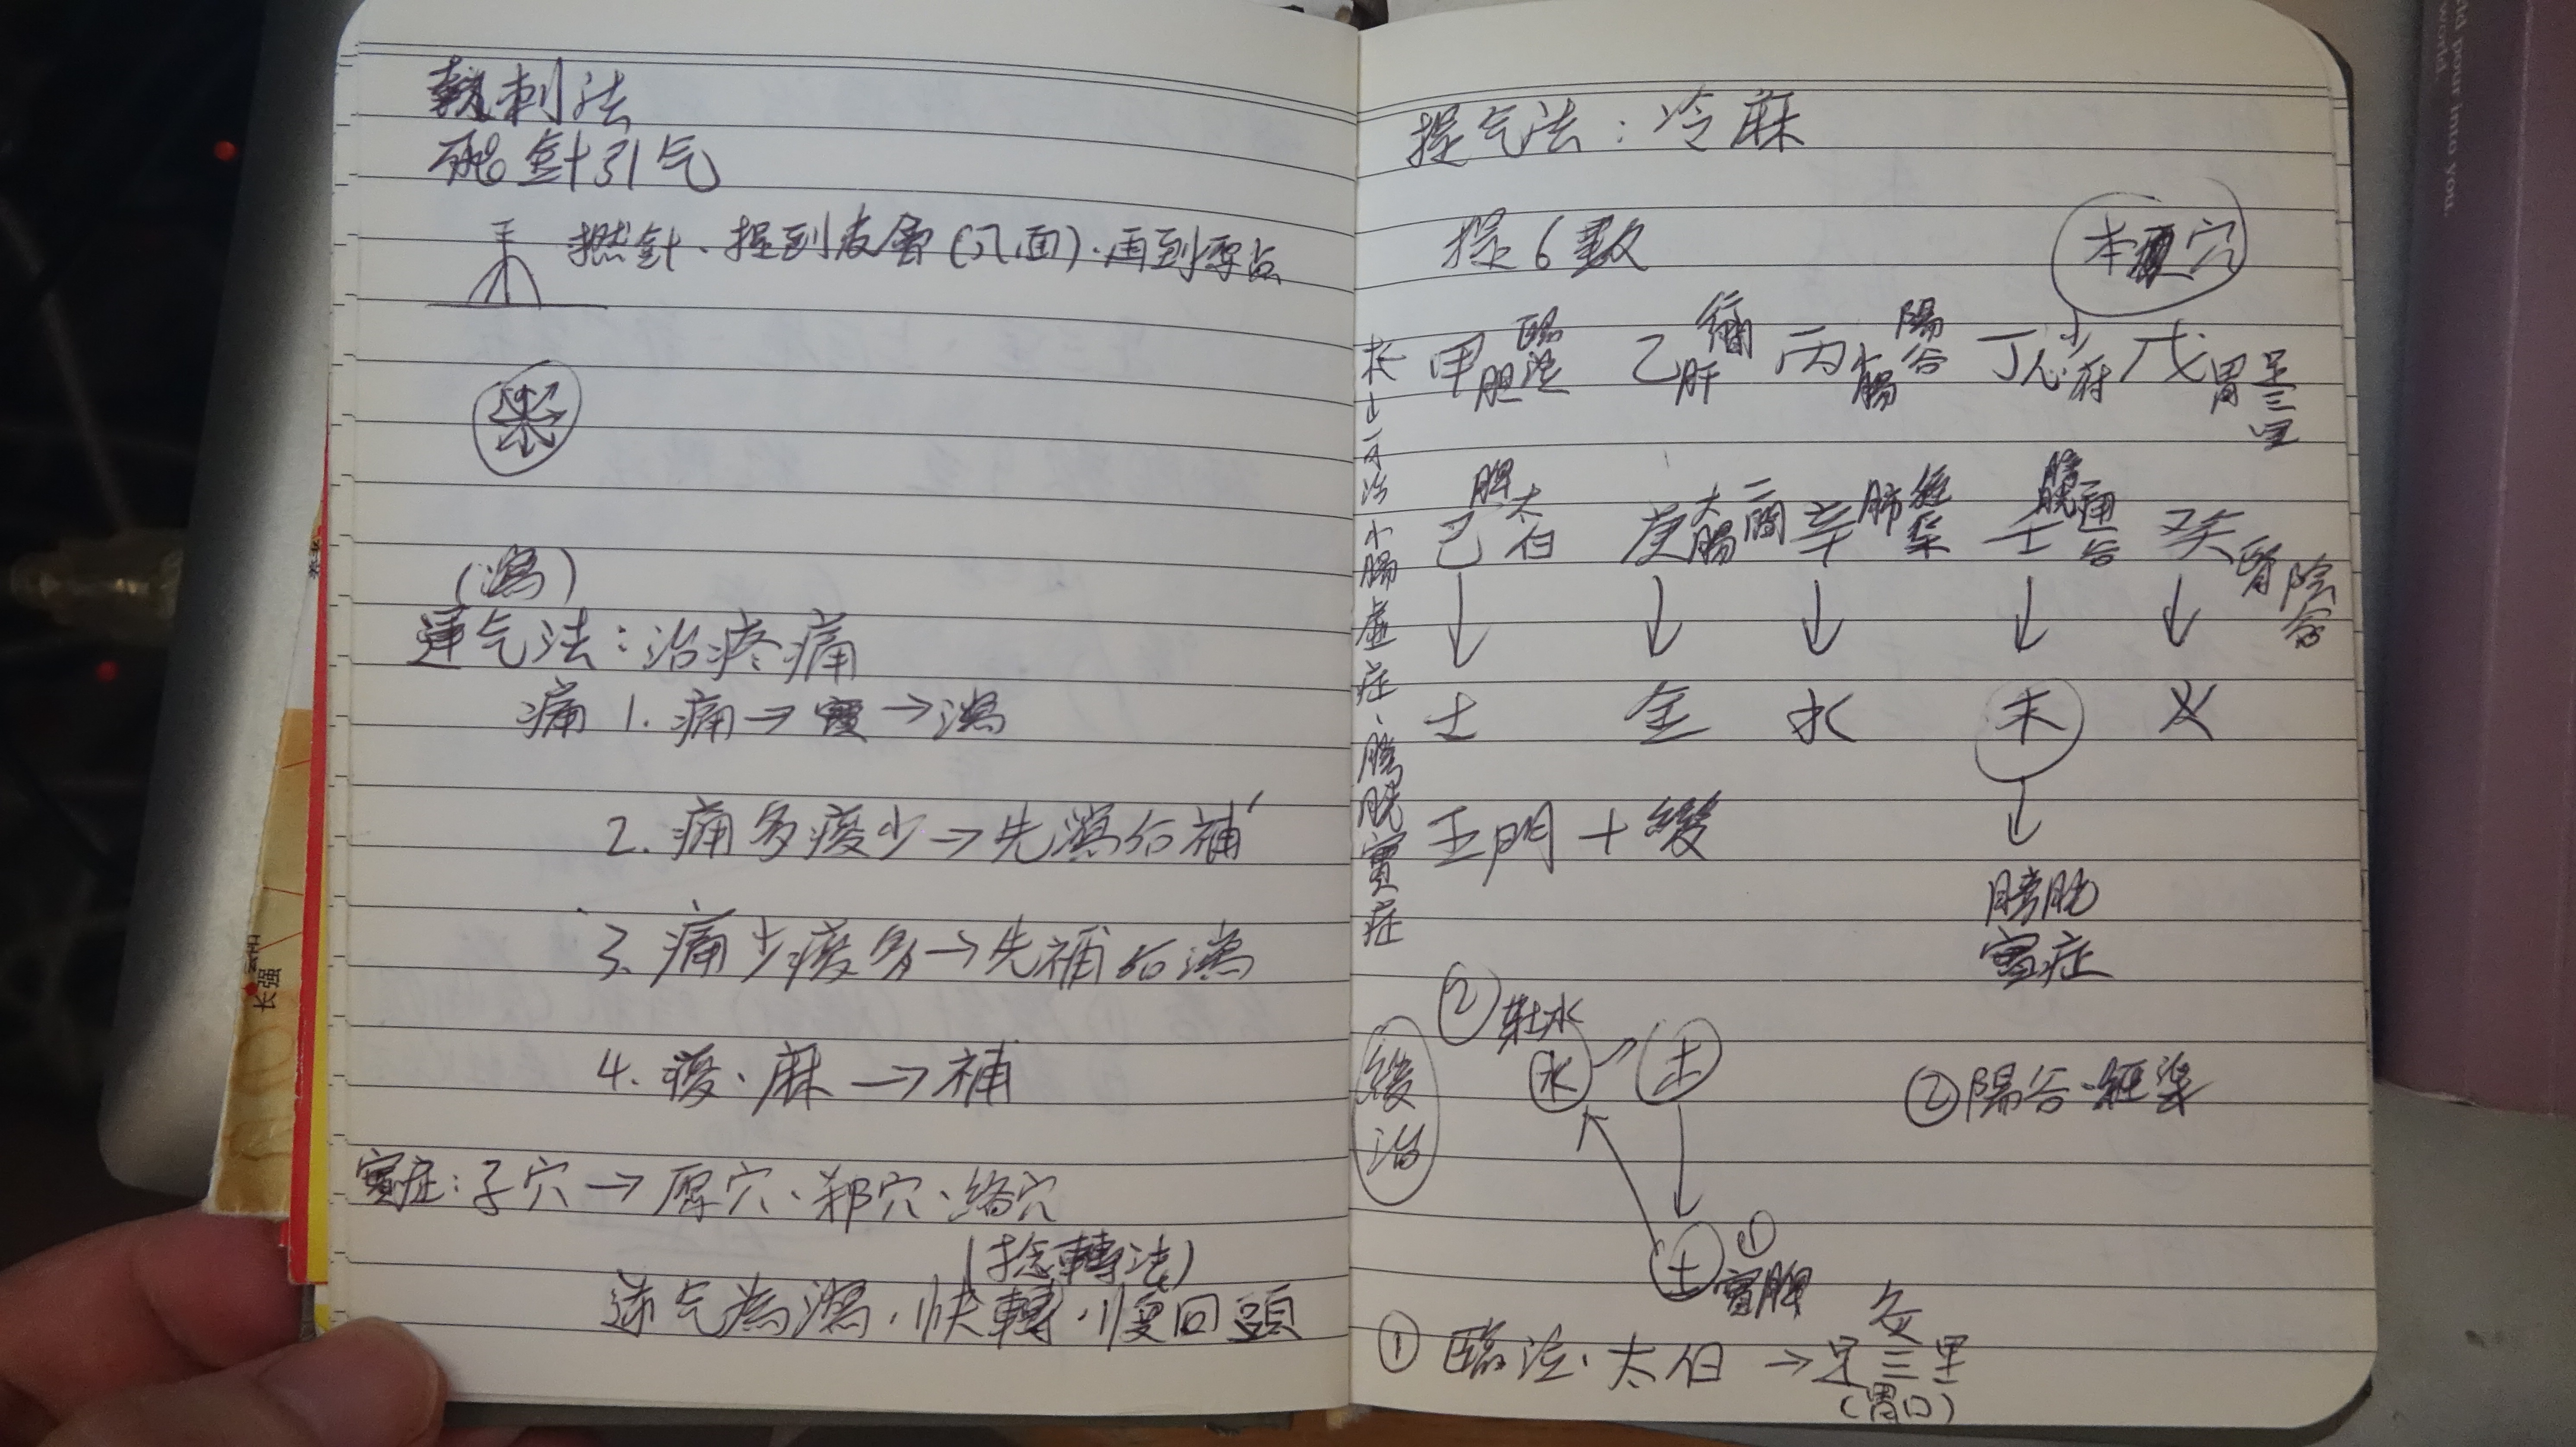 刺法
針引气
針、提到皮層(穴面)·再到原点
(瀉)
运气法：治疼痛
痛 1. 痛→實→瀉
2. 痛多痠少→先瀉后補
3. 痛少痠多→先補后瀉
4. 痠·麻→補
實症：子穴→原穴、郄穴、絡穴
(捻轉法)
迎气為瀉，快轉，慢回頭
長强
提气法：冷麻
提6数
本穴
甲 胆 臨泣 乙 肝 行間 丙 小腸 陽谷 丁 心 少府 戊 胃 足三里
己 脾 太白 庚 大腸 二間 辛 肺 經渠 壬 膀胱 通谷 癸 腎 陰谷
↓ ↓ ↓ ↓ ↓
土 金 水 木 火
小腸虛症、膀胱實症
五門十變
↓
膀胱
實症
② 水
緩治
水 木
② 陽谷·經渠
土 ① 實脾
灸
① 臨泣、太白→足三里
(胃口)
ld pour into you
world.